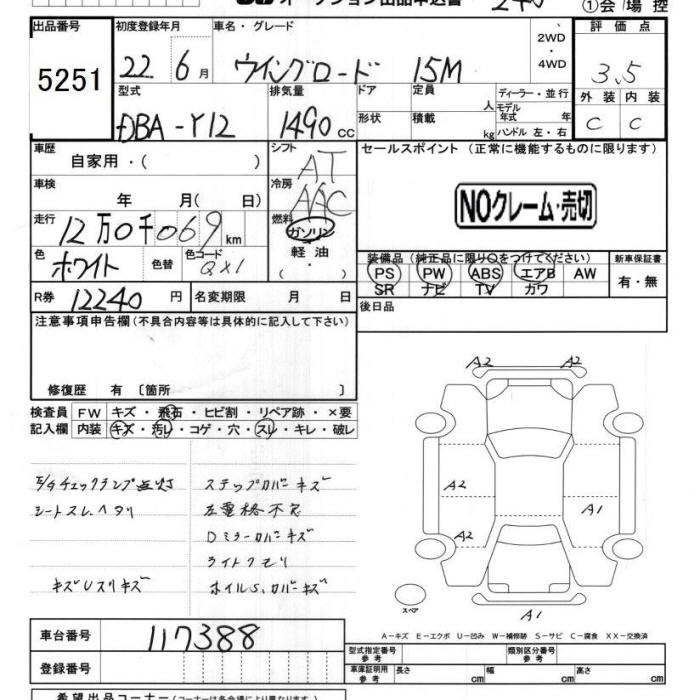 オークション出品申込書 240 ①会場控
出品番号 初度登録年月 車名・グレード 評価点
5251 22年6月 ウイングロード 15M 2WD・4WD 3.5
型式 排気量 ドア 定員 人 ディーラー・並行 外装 内装
DBA-Y12 1490cc 形状 積載 kg モデル年式 年 ハンドル 左・右 C C
車歴 自家用・( ) シフト AT セールスポイント (正常に機能するものに限ります)
車検 年 月( 日) 冷房 AAC
NOクレーム・売切
走行 12万0千069km 燃料 ガソリン
軽油
・( )
色 ホワイト 色替 色コード QX1
装備品 (純正品に限り○をつけてください) 新車保証書
PS PW ABS エアB AW 有・無
SR ナビ TV カワ
R券 12240円 名変期限 月 日 後日品
注意事項申告欄(不具合内容等は具体的に記入して下さい)
修復歴 有 [箇所 ]
検査員 FW キズ・飛石・ヒビ割・リペア跡・×要
記入欄 内装 キズ・汚レ・コゲ・穴・スレ・キレ・破レ
A2 A2
E/Gチェックランプ点灯 ステップカバーキズ
シートスレ、ヘタリ 左電格不良
A2 A1
Dミラーカバーキズ
A2
ライトクモリ
キズUスリキズ ホイルS、カバーキズ
スペア
A1
A-キズ E-エクボ U-凹み W-補修跡 S-サビ C-腐食 XX-交換済
車台番号 117388
型式指定番号 参考 類別区分番号 参考
登録番号 車庫証明用 参考 長さ cm 幅 cm 高さ cm
希望出品コーナー(コーナーは各会場により異なります)